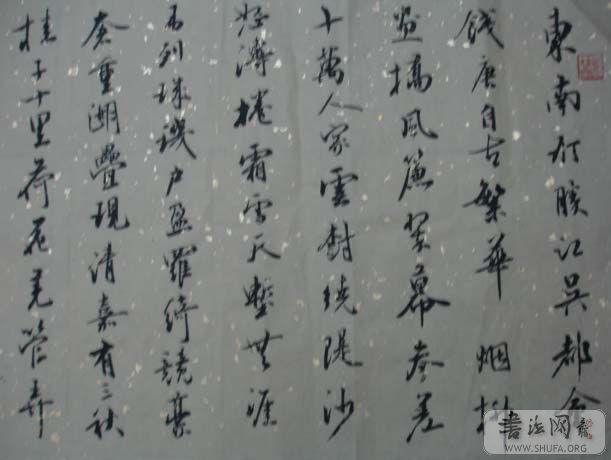 東南形勝江吳都会
錢唐自古繁華 烟柳
畫橋風簾翠幕参差
十萬人家雲樹繞隄沙
怒濤捲霜雪天塹無涯
市列珠璣户盈羅綺競豪
奢重湖疊現清嘉有三秋
桂子十里荷花羌管弄
書法网
WWW.SHUFA.ORG